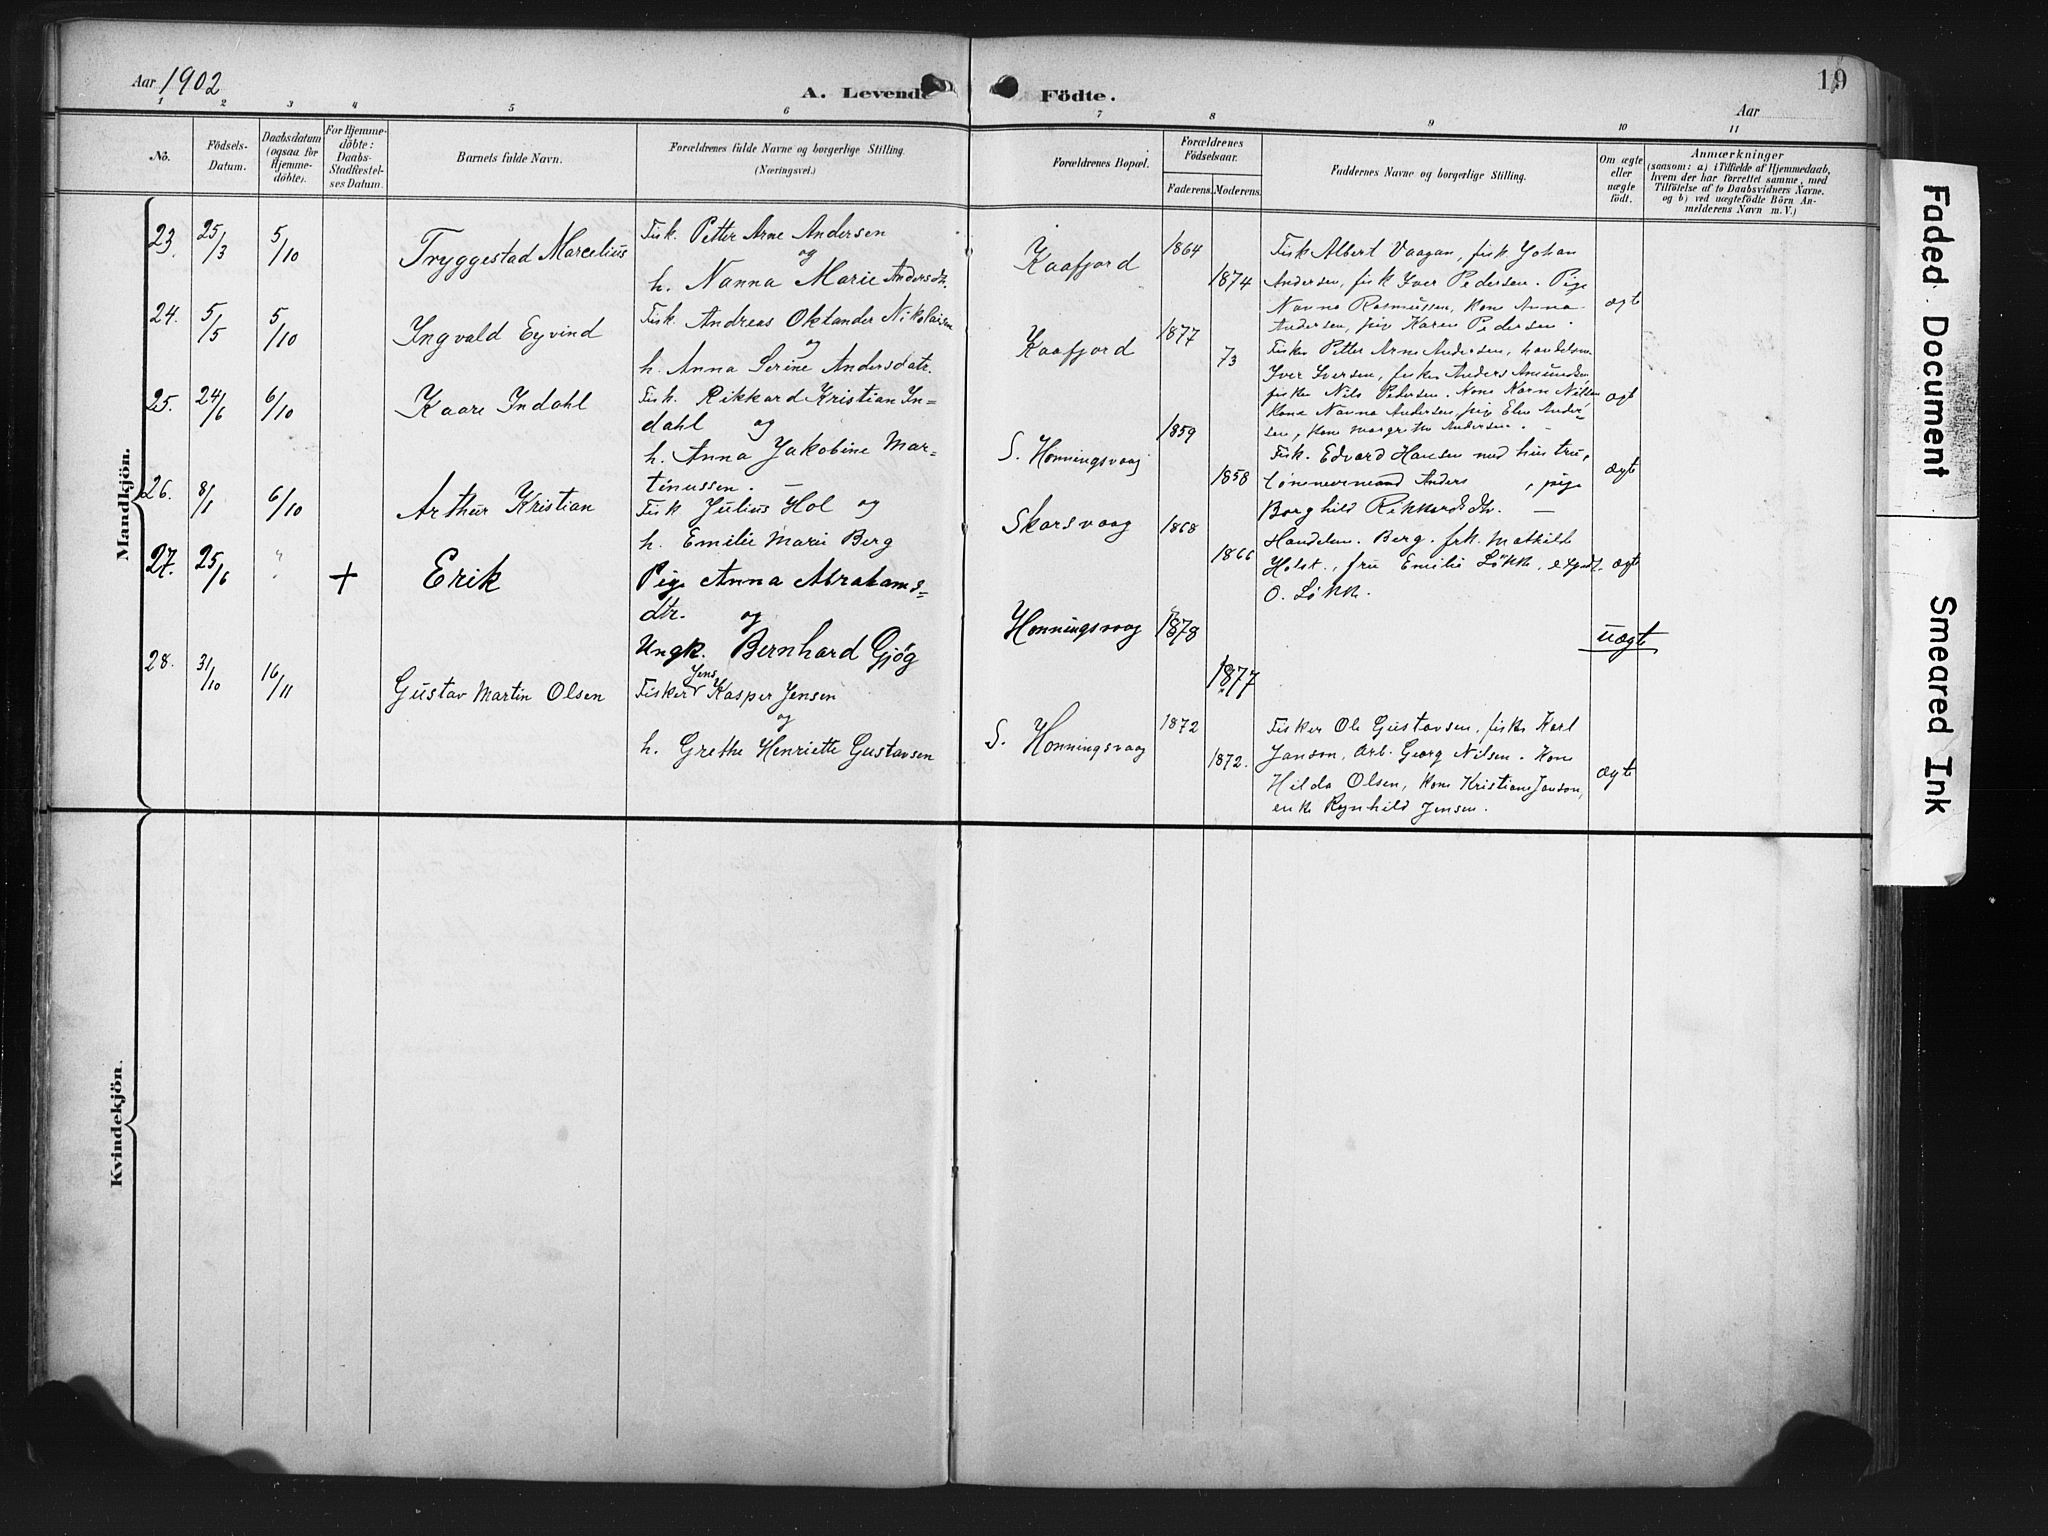 Aar 1902
A. Levende Födte.
19
Aar
1 2 3 4 5 6 7 8 9 10 11
No.
Födsels-Datum.
Daabsdatum (ogsaa for Hjemme-döbte).
For Hjemme-döbte: Daabs-Stadfæstel-ses Datum.
Barnets fulde Navn.
Forældrenes fulde Navne og borgerlige Stilling.
(Næringsvei.)
Forældrenes Bopæl.
Forældrenes Födselsaar.
Faderens. Moderens.
Faddernes Navne og borgerlige Stilling.
Om ægte eller uægte födt.
Anmærkninger
(saasom: a) i Tilfælde af Hjemmedaab,
hvem der har forrettet samme, med
Tilföielse af to Daabsvidners Navne.
og b) ved uægtefödte Börn An-
melderens Navn m. V.)
Mandkjön.
23. 25/3 5/10 Tryggestad Marcelius
Fisk. Petter Arne Andersen
og
h. Nanna Marie Andersdtr.
Kaafjord 1864 1874
Fisk Albert Vaagan, fisk Johan
Andersen, fisk Iver Pedersen. Pige
Nanna Rasmussen, kone Anna
Andersen, pige Karen Pedersen.
ægte
24. 5/5 5/10 Ingvald Eyvind
Fisk. Andreas Oktander Nikolaisen
og
h. Anna Serine Andersdatr.
Kaafjord 1877 73
Fisker Petter Arne Andersen, handelsm.
Iver Iversen, fisker Anders Amundsen
fisker Nils Pedersen. Kone Karn Nilsen
Kone Nanna Andersen, pige Elen Ander-
sen, kone Margrethe Andersen.
ægte
25. 24/6 6/10 Kaare Indahl
Fisk. Rikkard Kristian In=
dahl og
h. Anna Jakobine Mar=
tinussen. —
S. Honningsvaag 1859 1858
Fisk. Edvard Hansen med hustru,
Lønsmormand Anders , pige
Borghild Rikkardsdtr. —
ægte
26. 8/8 6/10 Arthur Kristian
Fisk Julius Hol og
h. Emilie Marie Berg
Skarsvaag 1868 1866
Handelsm. Berg. frk. Mathilde
Holst., fru Emilie Løkke, exped.
O. Løkke.
ægte
27. 25/6 " + Erik
Pige Anna Abrahams=
dtr. og
Ungk. Bernhard Gjøg
Honningsvaag 1878 1877
uægte
28. 31/10 16/11 Gustav Martin Olsen
Fisker Jens Kasper Jensen
og
h. Grethe Henriette Gustavsen
S. Honningsvaag 1872 1872.
Fisker Ole Gustavsen, fisker Karl
Janson, Arb. Georg Nilsen. Kone
Hilda Olsen, kone Kristiane Janson,
enke Rynhild Jensen.
ægte
Kvindekjön.
Faded Document
Smeared Ink